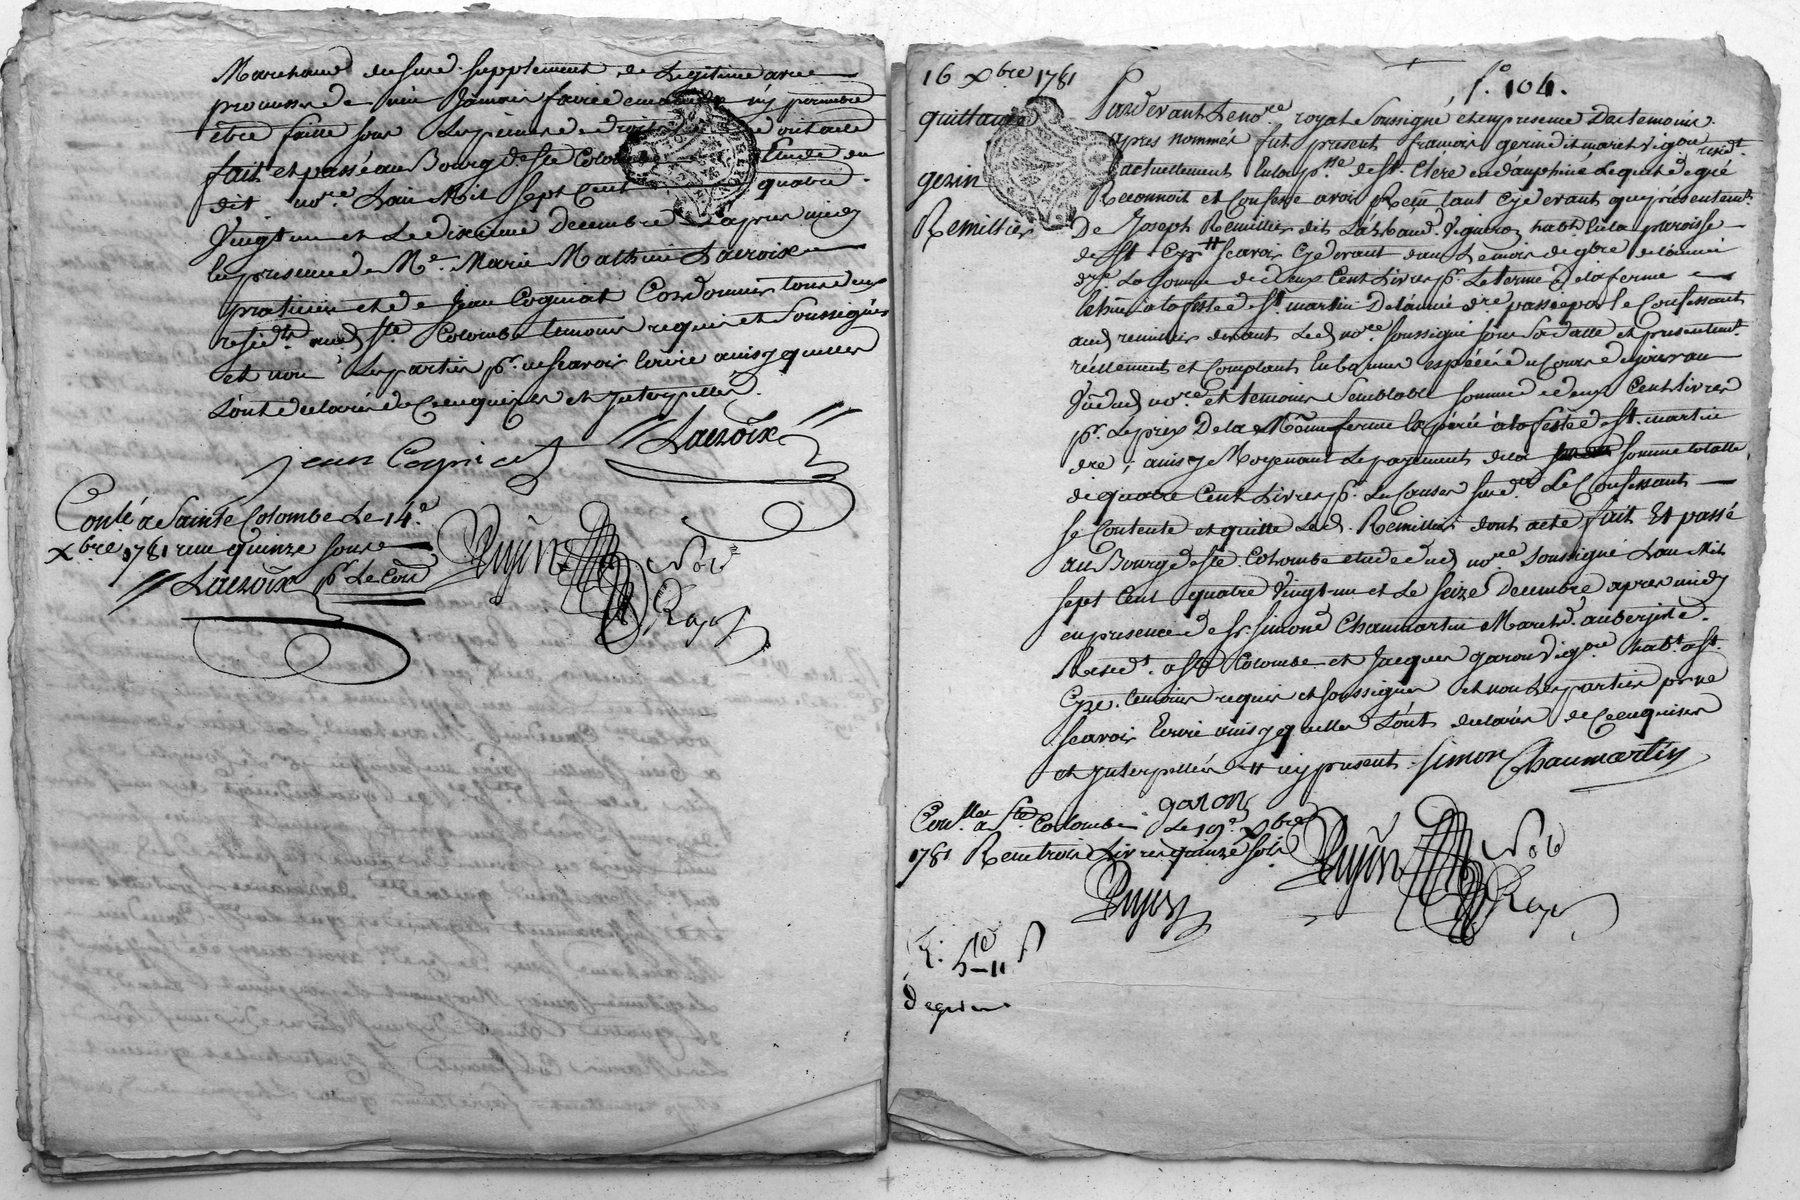 Marchand du susd. supplement de Legitime avec
promesse de n'en Jamais faire demande ny permettre
être faitte sous Les peines de droit dont acte
fait et passé au Bourg de Ste Colombe Etude du
dit no.re L'an Mil sept Cent quatre
Vingt un et Le dixieme Decembre apres midy
En presence de Me. Marie Mathieu Lacroix
praticien et de Jean Cogniat Cordonnier tous deux
resid.ts aud. Ste. Colombe temoins requis et Soussignés
et non Les parties pr. ne scavoir Ecrire ainsy qu'elles
L'ont declaré de Ce enquises et Interpellées.
Lacroix
jean Cogniat
Conlé a Sainte Colombe Le 14.e
Xbre 1781 reçu quinze sous
Lacroix pr. Le Con
Pujin No.re
Ray
16 Xbre 1781
quittance
gerin
Remillier
f.o 104.
Pardevant Le no.re royal Soussigné et en presence Des temoins
apres nommés fut present françois gerin dit maret Vigon resid.t
actuellement En la p.sse de St. Clere en dauphiné Lequel de gré
Reconnoit et Confesse avoir Reçu tant Cy devant que présentem.t
De Joseph Remillier dit Vigneron habt. En la paroisse
de St. Cyr # scavoir Cy devant dans Le mois de 9bre de L'année
dre. La somme de deux Cent Livres pr. Le terme De la ferme
Echu a la feste de St. martin De L'année dre. passée par le Confessant
aud. remillier devant Led. no.re soussigné sous Sa datte et presentem.t
réellement et Comptant En bonnes espéces du Cours de ce jour au
Vu dud. no.re et temoins Semblable somme de deux Cent Livres
pr. Le prix De la Même ferme Expirée à la feste de St. martin
dre, ainsy Moyenant Le payement de la somme totalle
de quatre Cent Livres pr. Les Causes susd. Le Confessant
se Contente et quitte Led. Remillier dont acte fait Et passé
au Bourg de Ste. Colombe etude dud. no.re soussigné L'an Mil
sept Cent quatre Vingt un et Le seize Decembre apres midy
en presence de Sr. Simond Chaumartin March.d aubergiste
Resid.t a Ste Colombe et Jacques garon Vigon habt. a St.
Cyre temoins requis et soussignés et non Les parties pr ne
scavoir Ecrire ainsy qu'elles L'ont declaré de Ce enquises
et Interpellées # icy present. Simon Chaumartin
garon
Con.llé a Ste Colombe Le 19.e Xbre
1781 Reçu trois Livres quinze sols
Pujin
Pujin No.re
Ray